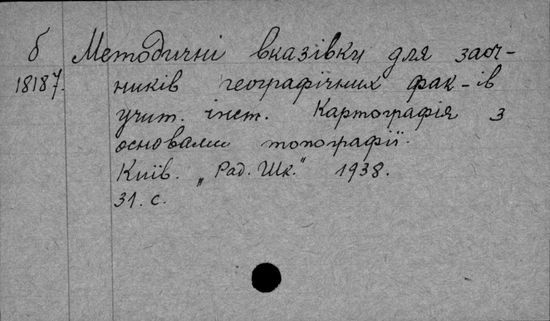 б Методичні вказівки для заоч-
18187. ників географічних фак-ів
учит. інст. Картографія з
основами топографії.
Київ. „Рад. Шк." 1938.
31. с.